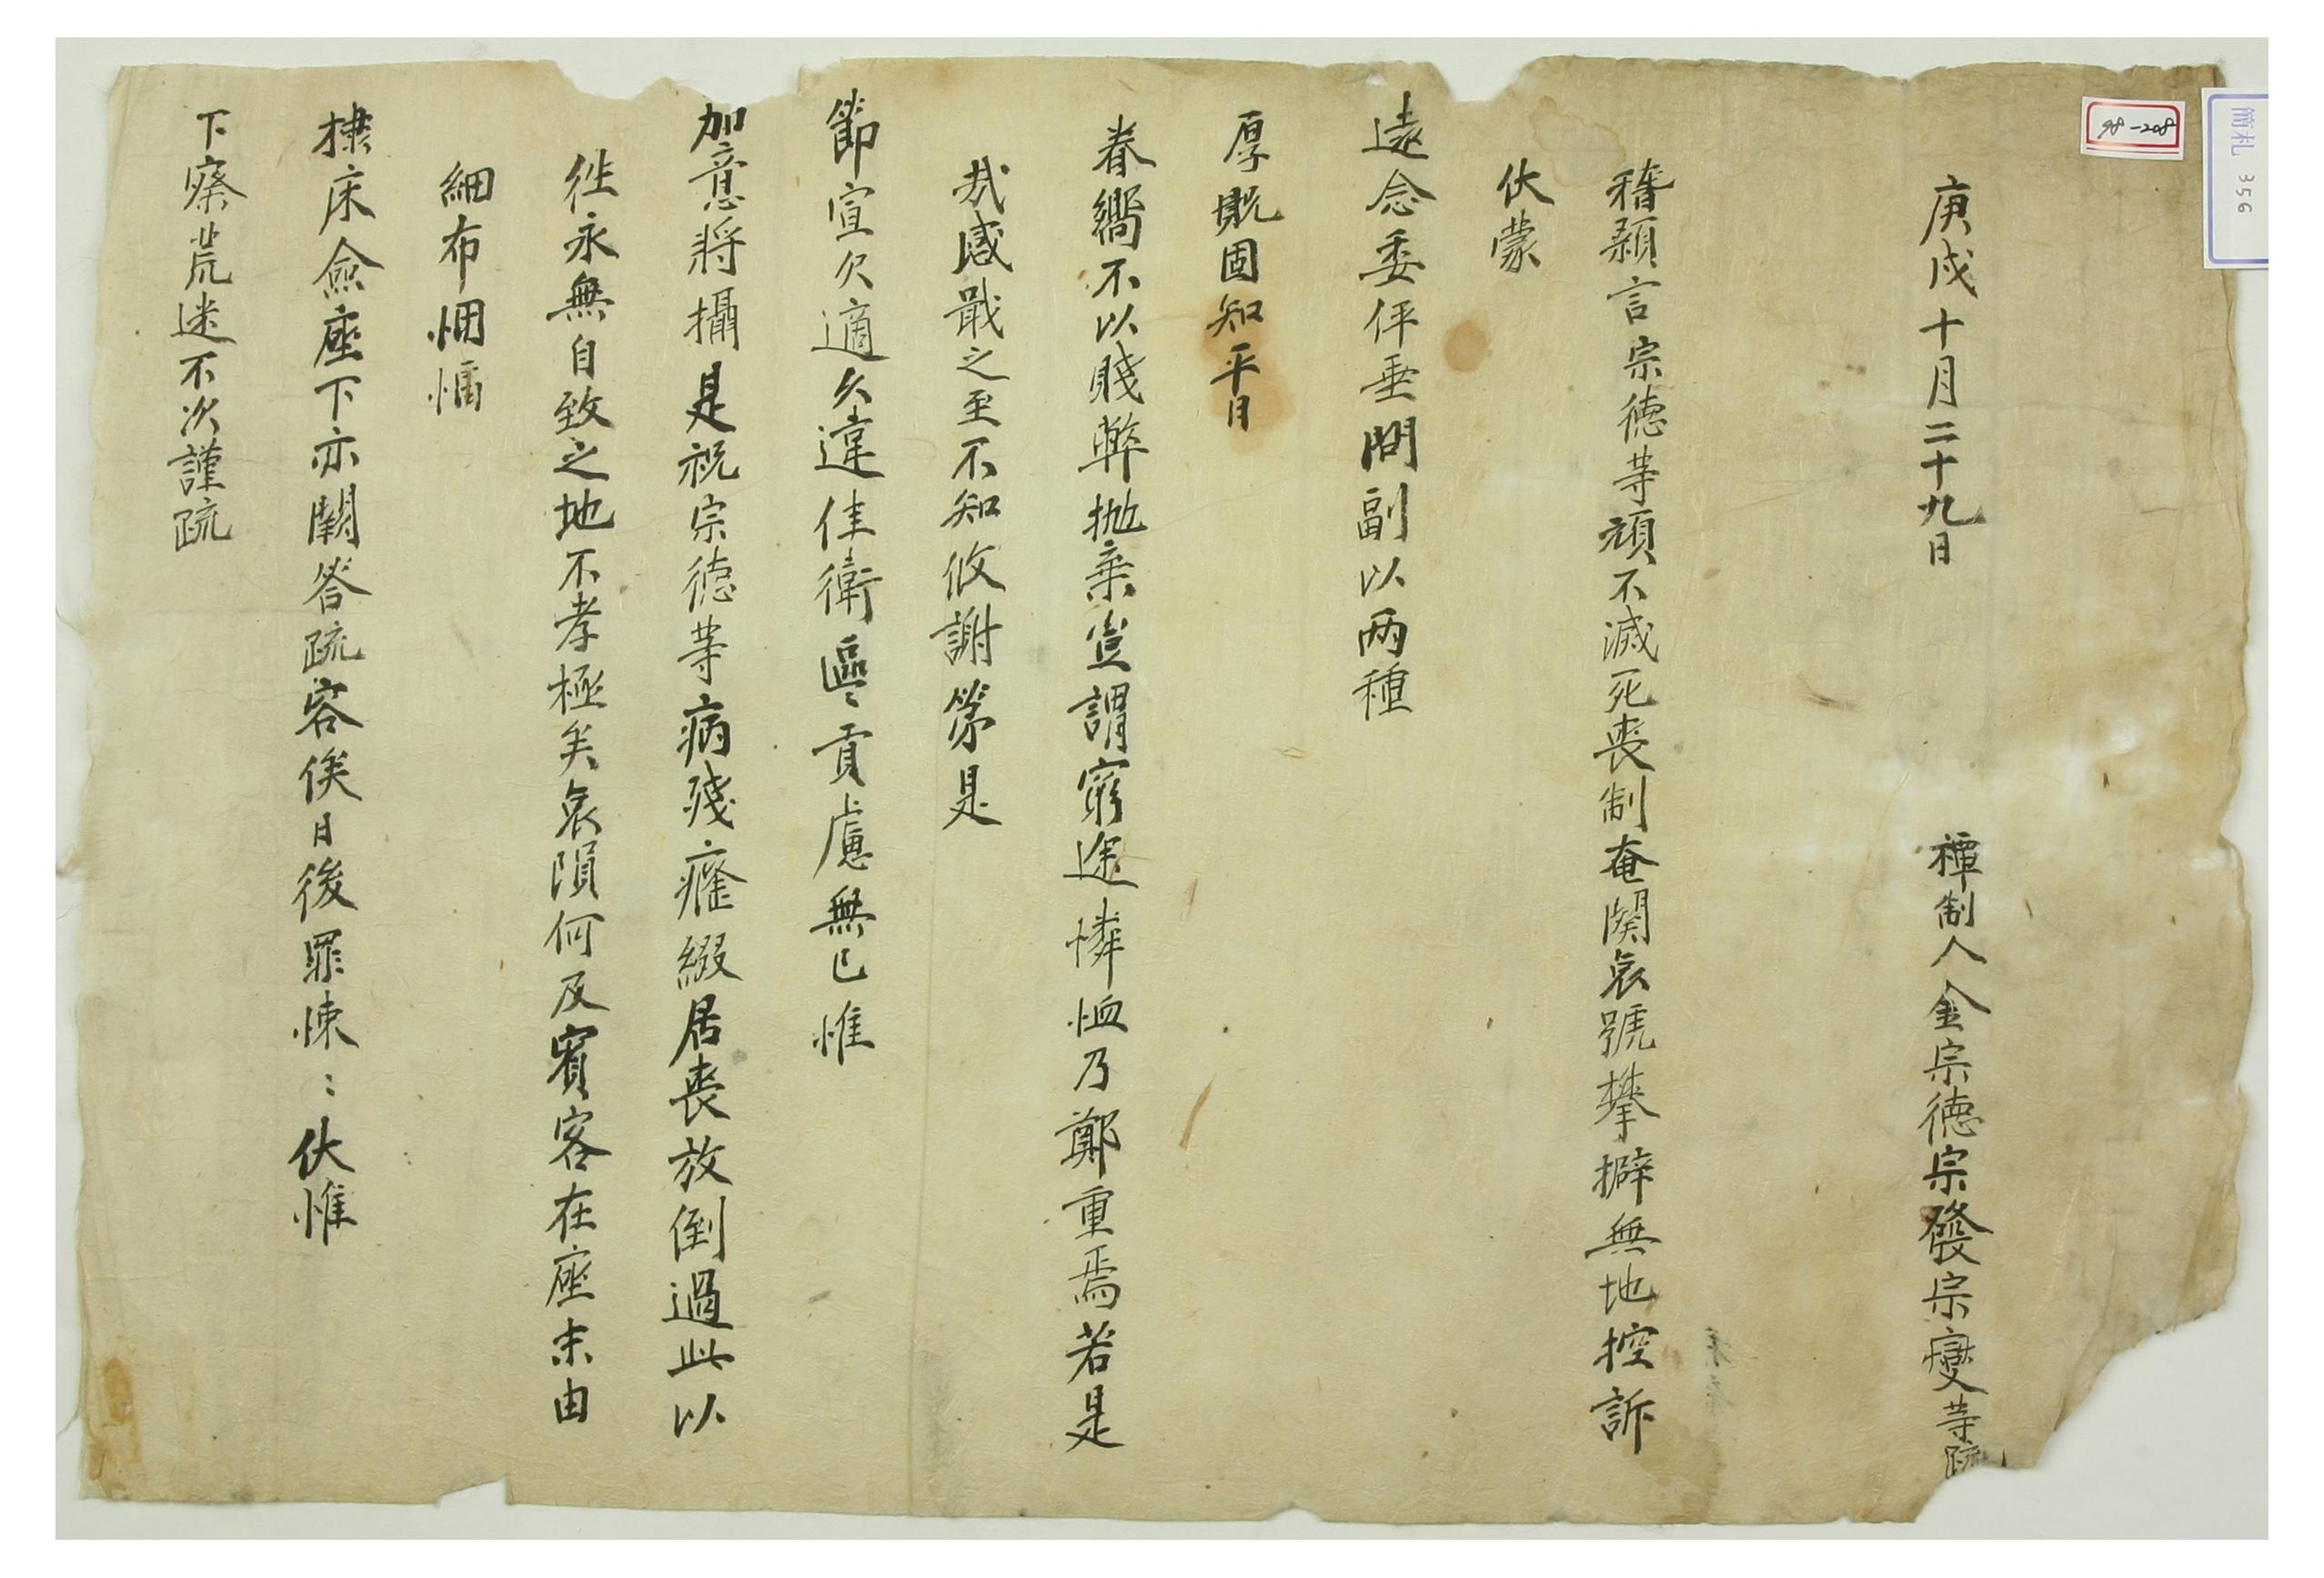 簡札 356
98-208
庚戌十月二十九日 禫制人金宗德宗發宗燮等疏
稽顙言宗德等頑不滅死喪制奄闋哀號攀擗無地控訴
伏蒙
遠念委伻垂問副以兩種
厚貺固知平日
眷嚮不以賤弊抛棄豈謂窮途憐恤乃鄭重焉若是
哉感戢之至不知攸謝第是
節宣欠適久違佳衛區區貢慮無已惟
加意將攝是祝宗德等病殘癃綴居喪放倒過此以
徃永無自致之地不孝極矣哀隕何及賓客在座末由
細布悃愊
棣床僉座下亦闕答疏容俟日後罪悚：伏惟
下察荒迷不次謹疏